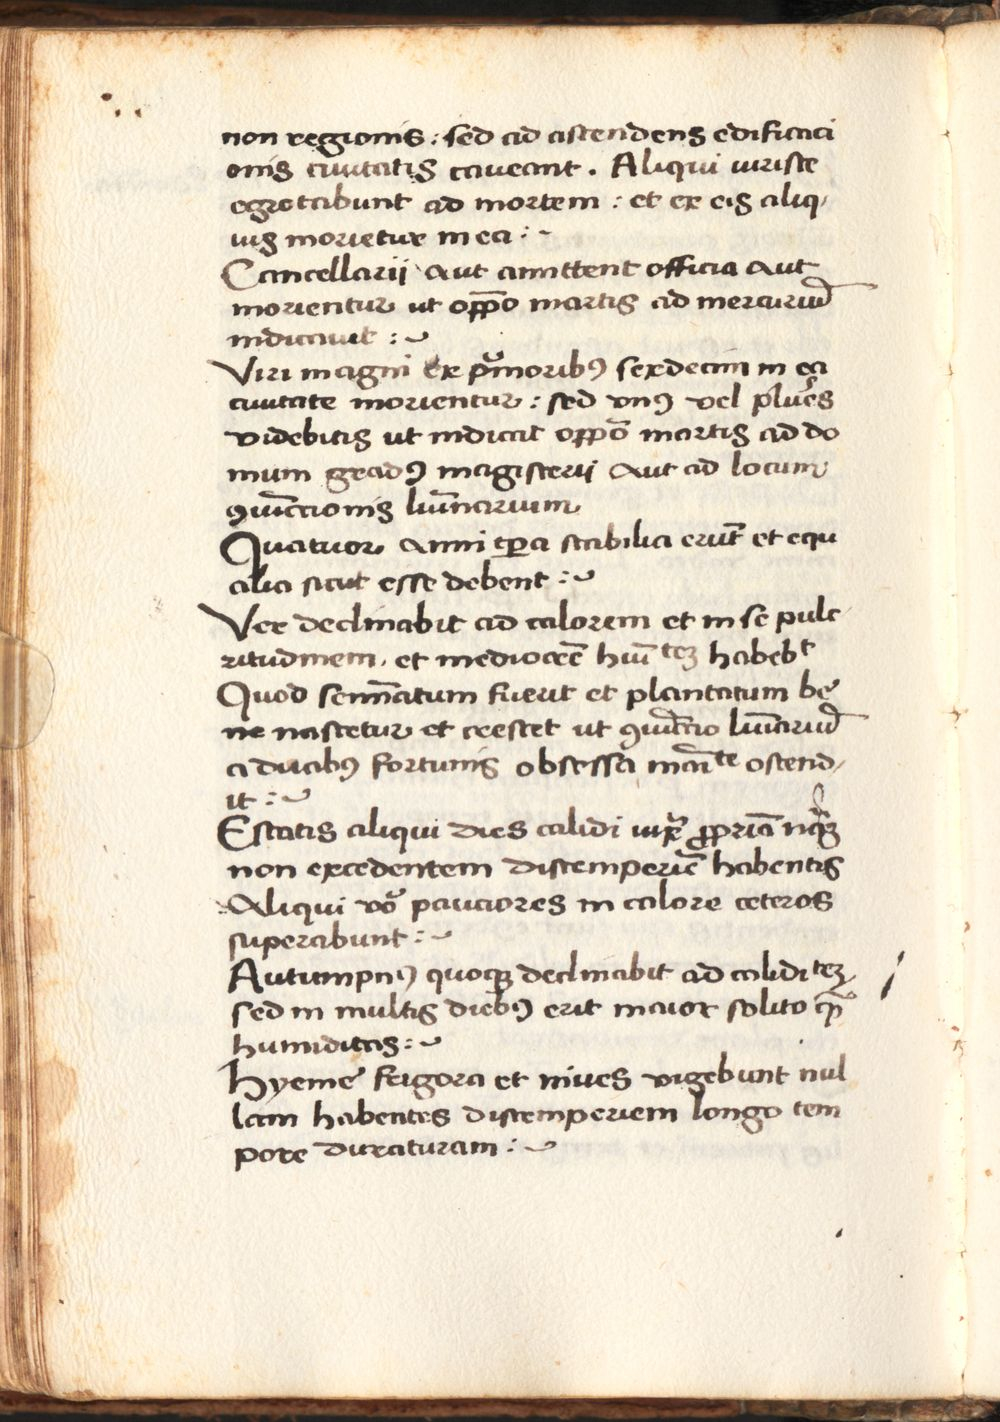 non regionis : sed ad ascendens edificaci
onis ciuitatis caueant . Aliqui iuriste
egrotabunt ad mortem : et ex eis aliq,
uis morietur in ea : ~
Cancellarii aut amittent officia aut
morientur ut opp̄o martis ad mercuriū
indicauit : ~
Viri magni ex pͥmoribꝰ sexdecim in ea
ciuitate morientur : sed vnꝰ vel plures
videbitis ut indicat opp̄o martis ad do
mum gradꝰ magisterii aut ad locum
ꝯiūctionis lūinarium
Quatuor anni tp̄a stabilia erūt et equ
alia sicut esse debent : ~
Ver declinabit ad calorem et in se pulc
ritudinem, et mediocrē hūiͭᵉᶻ habebᵗ
Quod semīatum fuerit et plantatum be
ne nascetur et crescet ut ꝯiūctio lūīariū
a duabꝰ fortunis obsessa maīᵗᵉ ostend,
it : ~
Estatis aliqui dies calidi iuxͣ ꝓpriā
non excedentem distemperiē habentis
Aliqui vͦo pauciores in calore ceteros
superabunt : ~
Autumpnꝰ quoqꝫ declinabit ad calidiᵗᵉᶻ
sed in multis diebꝰ erit maior solito qͣꝫ
humiditas : ~
Hyeme frigora et niues vigebunt nul
lam habentes distemperiem longo tem
pore duraturam : ~